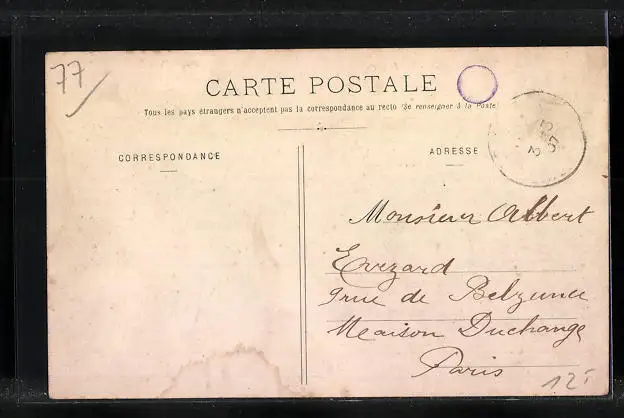 77
CARTE POSTALE
Tous les pays étrangers n'acceptent pas la correspondance au recto (Se renseigner à la Poste
CORRESPONDANCE
ADRESSE
Monsieur Albert
Evezard
9 rue de Belzunce
Maison Duchange
Paris
12